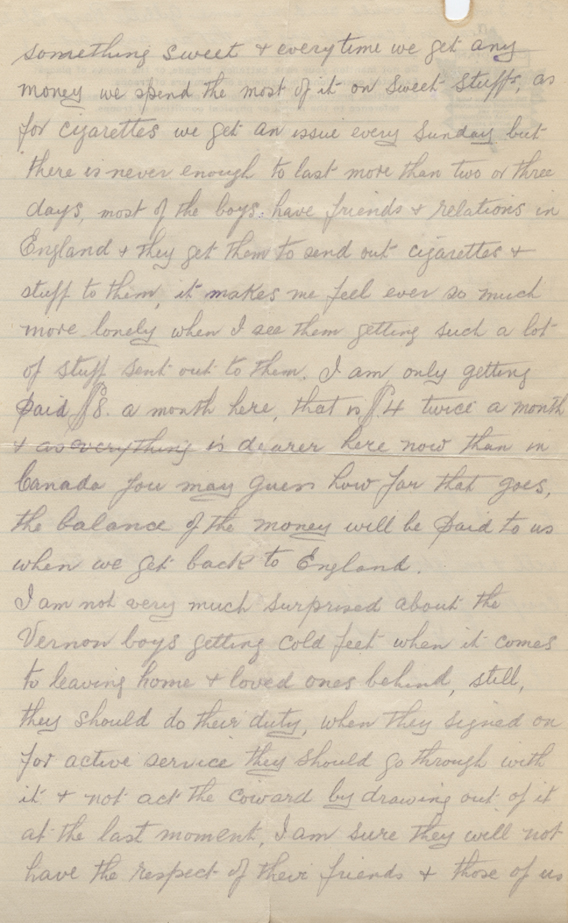 something sweet & everytime we get any
money we spend the most of it on sweet stuffs, as
for cigarettes we get an issue every Sunday but
there is never enough to last more than two or three
days, most of the boys, have friends & relations in
England & they get them to send out cigarettes &
stuff to them, it makes me feel ever so much
more lonely when I see them getting such a lot
of stuff sent out to them. I am only getting
paid $8. a month here, that is $4 twice a month
& as everything is dearer here now than in
Canada you may guess how far that goes,
the balance of the money will be paid to us
when we get back to England.
I am not very much surprised about the
Vernon boys getting cold feet when it comes
to leaving home & loved ones behind, still,
they should do their duty, when they signed on
for active service they should go through with
it & not act the coward by drawing out of it
at the last moment, I am sure they will not
have the respect of their friends & those of us